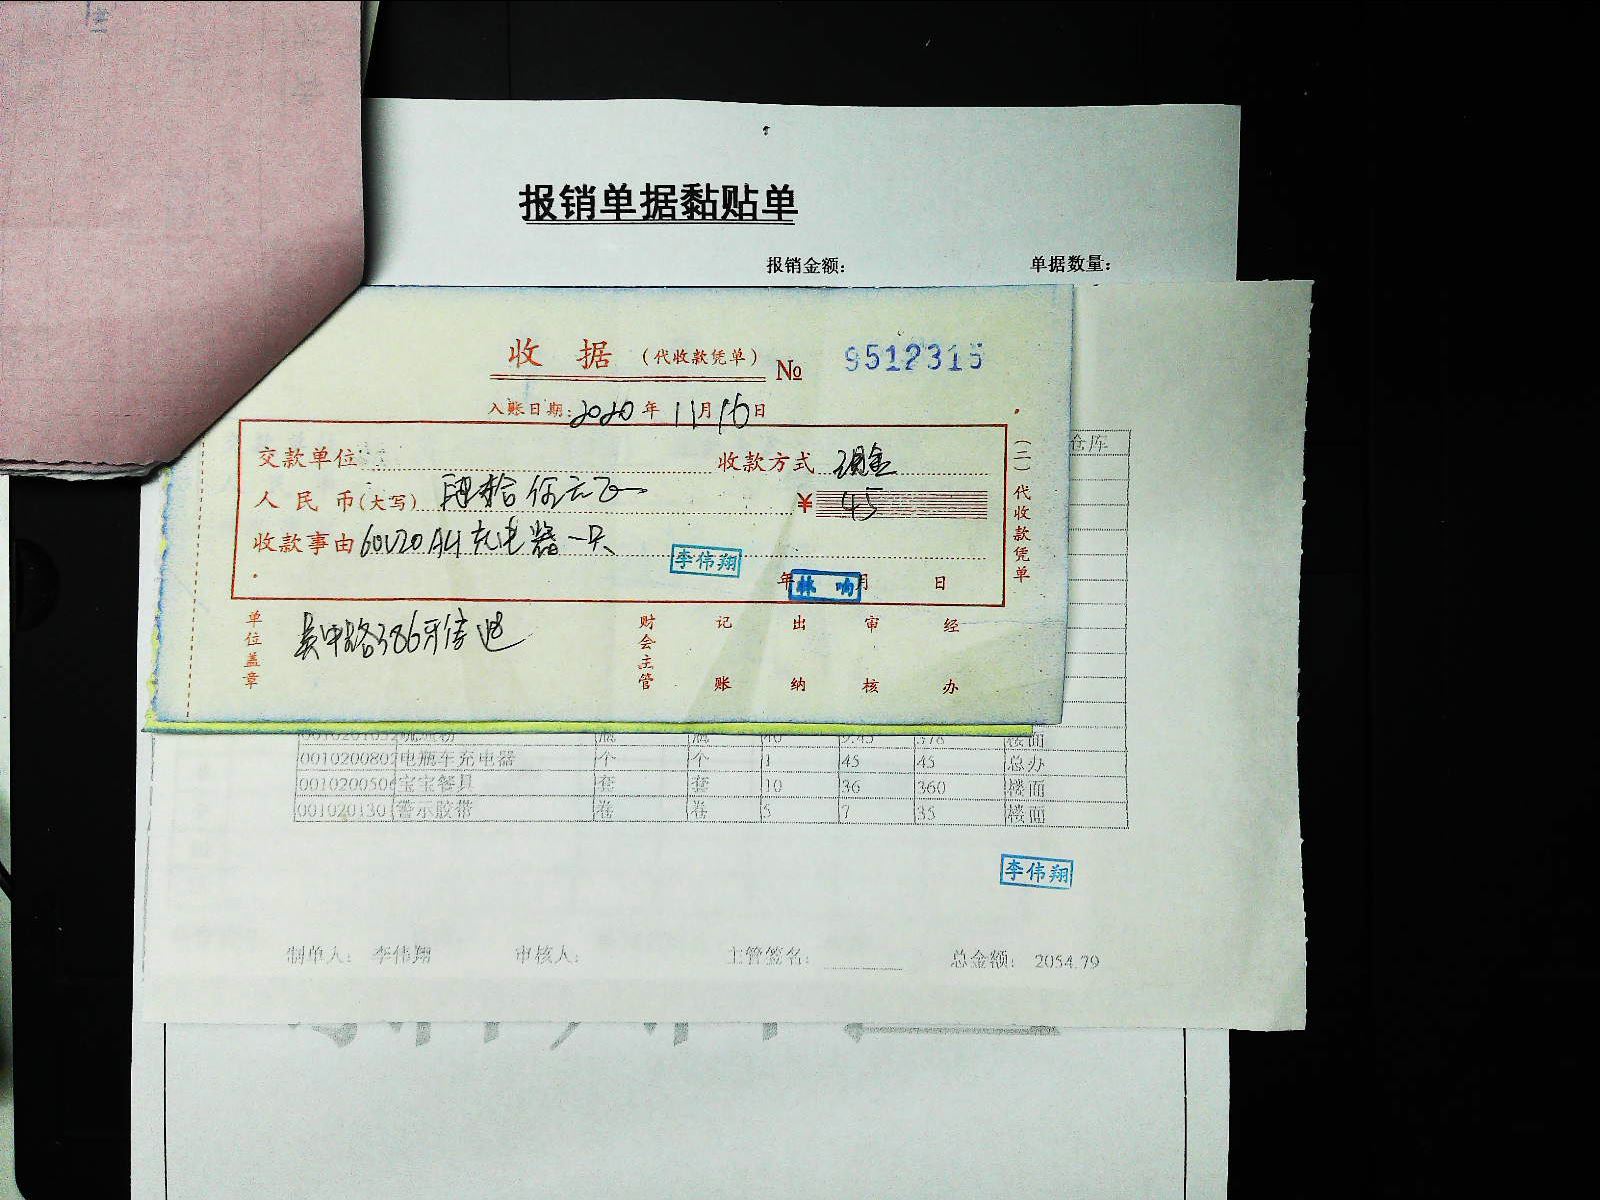 报销单据黏贴单
报销金额： 单据数量：
收 据 （代收款凭单） № 9512315
入账日期：2020年11月16日
交款单位 收款方式 现金
人民币（大写） 肆拾伍元 ¥ 45
收款事由 60V20AH充电器一只
李伟翔
年 月 日
林响
（二）代收款凭单
单位盖章 吴中路386号
财会主管 记账 出纳 审核 经办
仓库
378 楼面
0010200802 电瓶车充电器 个 个 1 45 45 总办
001020050 宝宝餐具 套 套 10 36 360 楼面
001020130 警示胶带 卷 卷 5 7 35 楼面
李伟翔
制单人： 李伟翔 审核人： 主管签名： 总金额： 2054.79